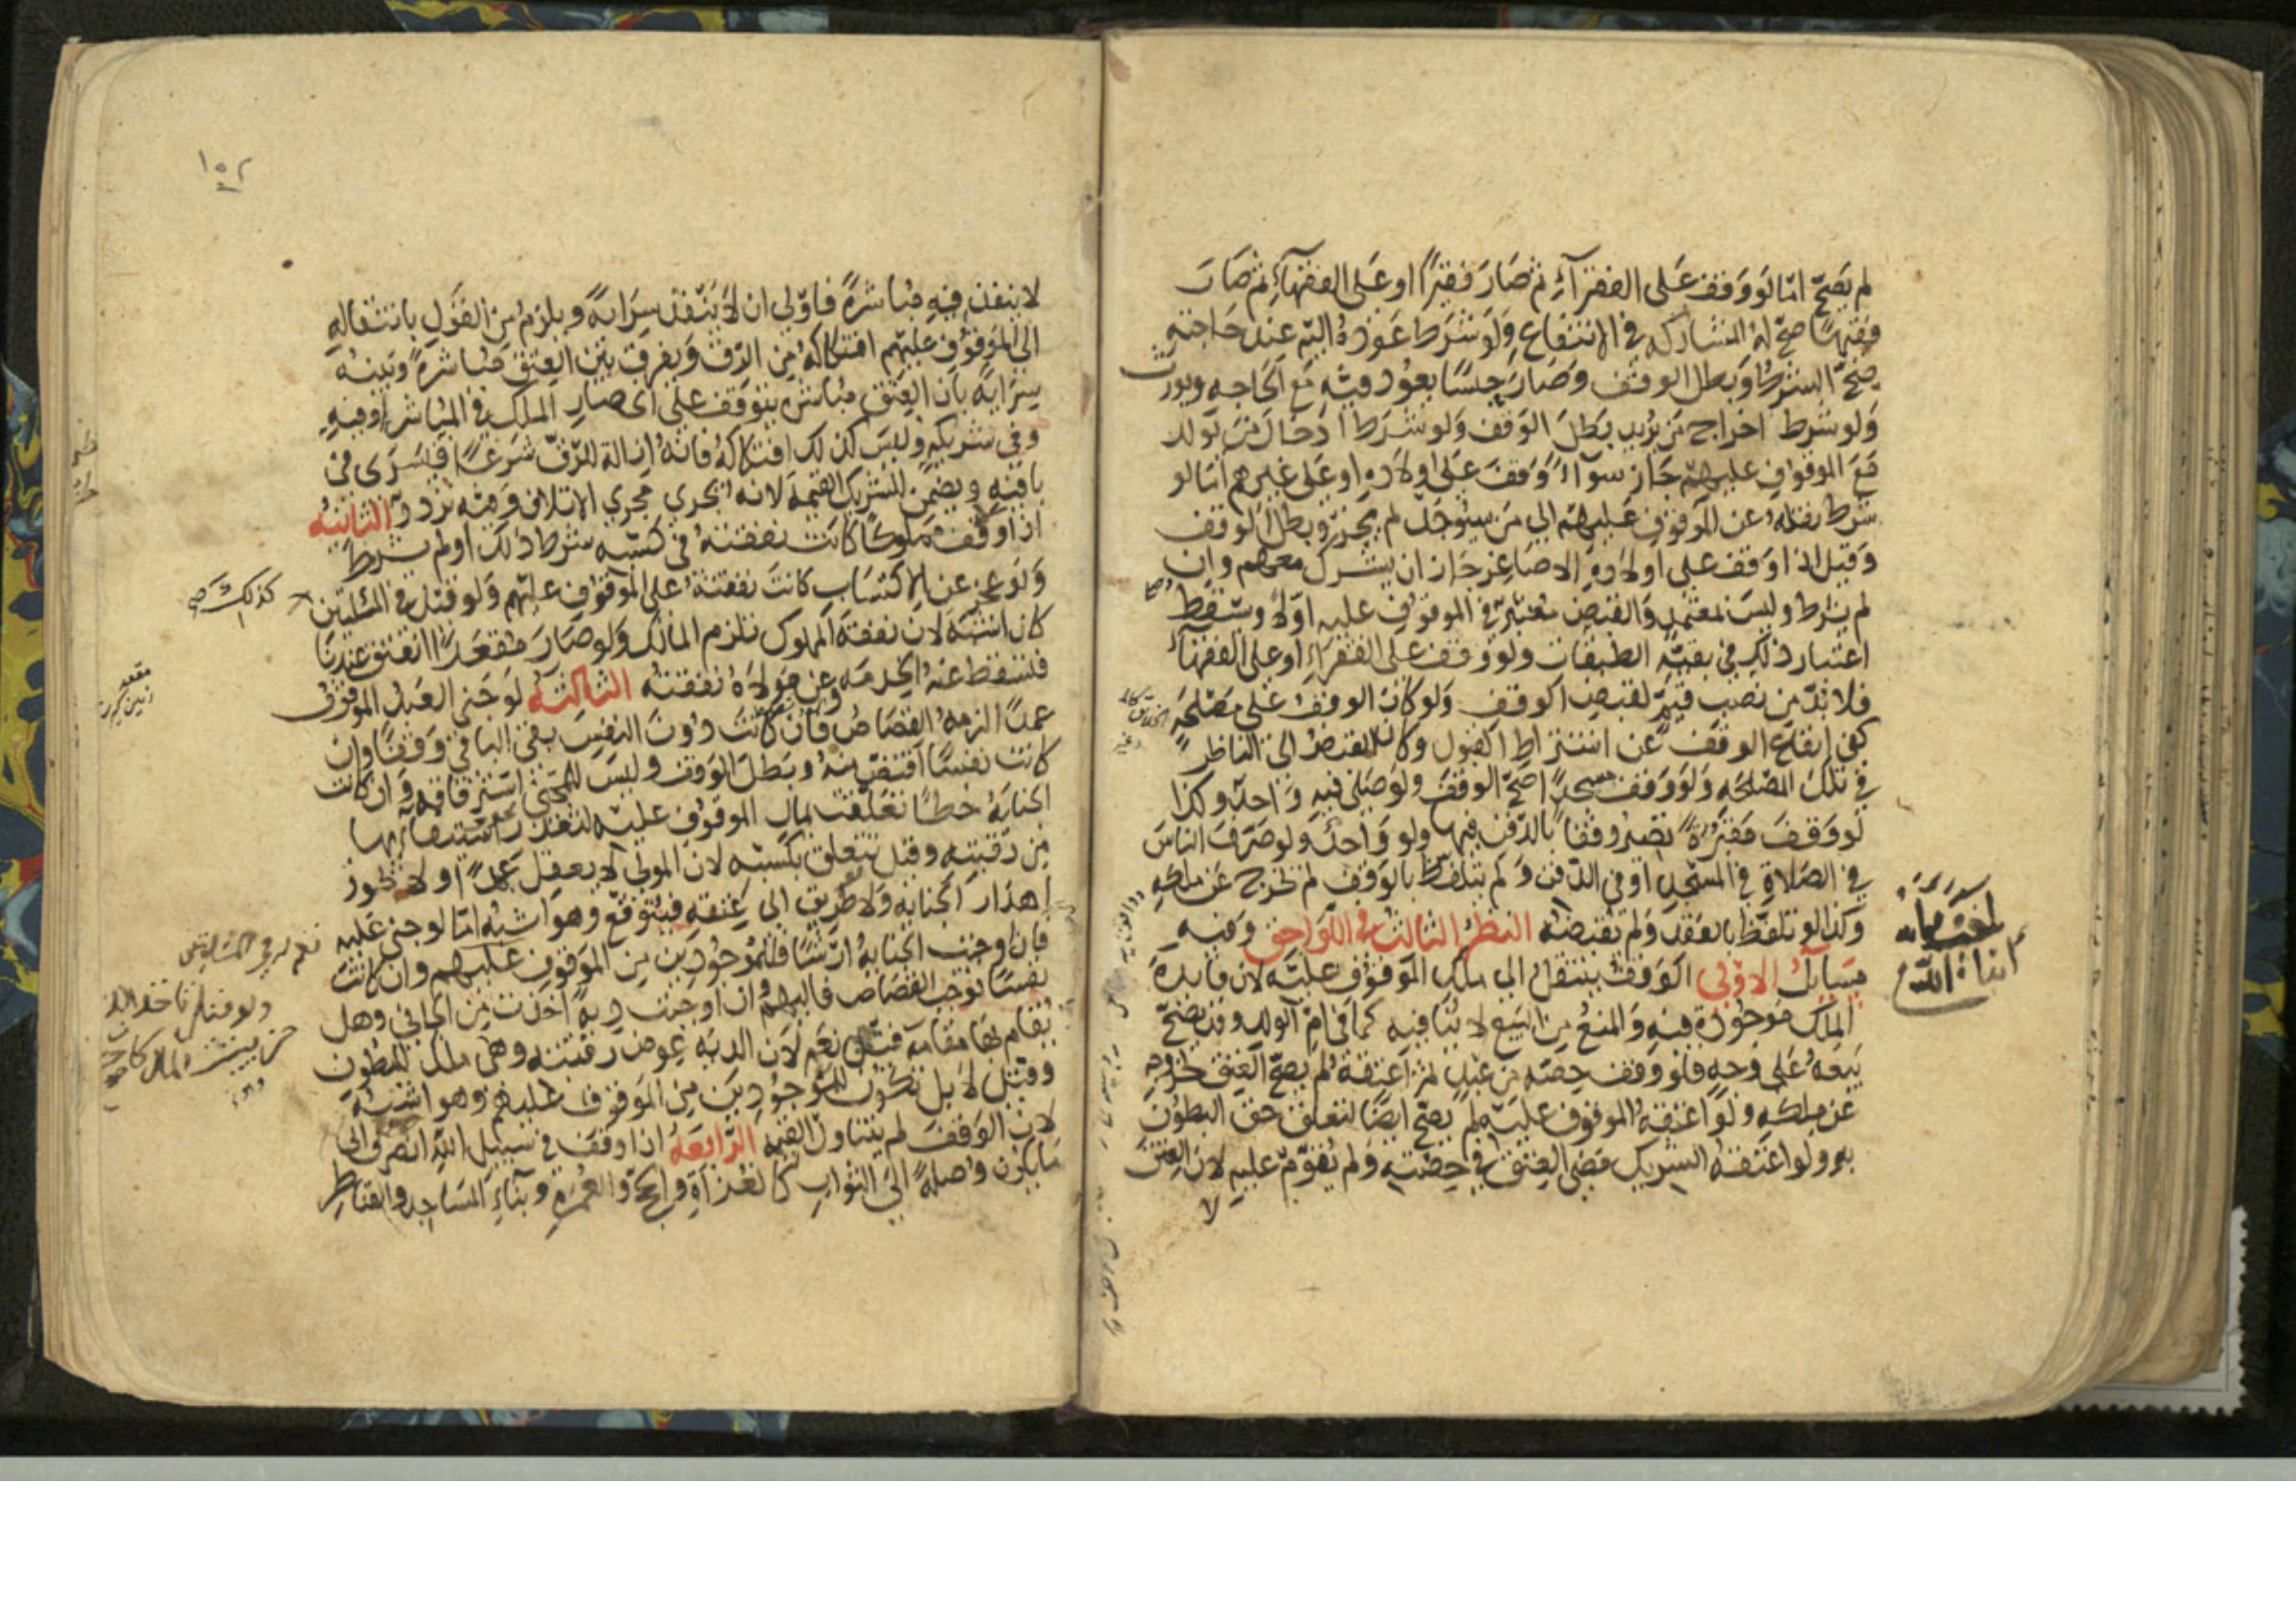 لم يصح اما لو وقف على الفقرآء ثم صار فقيرًا او على الفقهآء ثم صار
فقيهًا صح له المشاركه في الانتفاع ولو شرط عوده اليه عند حاجته
صحّ الشرط وبطل الوقف وصار حبسًا يعود فيه مع الحاجه ويورث
ولو شرط اخراج من يريد بطل الوقف ولو شرط ادخال من يولد
مع الموقوف عليهم جاز سوآء وقف على اولاده او على غيرهم اما لو
شرط نقله عن الموقوف عليهم الى من سيوجد لم يجز وبطل الوقف
وقيل اذا وقف على اولاده الاصاغر جاز ان يشرك معهم وان
لم يشرط وليس بمعتمد والقبض معتبر في الموقوف عليه اولا ويسقط
اعتبار ذلك في بقية الطبقات ولو وقف على الفقرآء او على الفقهآء
فلا بدّ من نصب قيّم لقبض الوقف ولو كان الوقف على مصلحة
كفى ايقاع الوقف عن اشتراط القبول وكان القبض الى الناظر
في تلك المصلحه ولو وقف مسجدًا صحّ الوقف ولو صلى فيه واحد وكذا
لو وقف مقبرة تصير وقفا بالدفن فيها ولو واحد ولو صرف الناس
في الصلاة في المسجد او في الدفن ولم يتلفظ بالوقف لم تخرج عن ملكه
وكذا لو تلفظ بالعقد ولم يقبضه النظر الثالث في اللواحق وفيه
مسآئل الاولى الوقف ينتقل الى ملك الموقوف عليه لان فايدة
الملك موجودة فيه والمنع من البيع لا ينافيه كما في ام الولد وقد يصحّ
بيعه على وجه فلو وقف حصته من عبد ثم اعتقه لم يصحّ العتق لخروجه
عن ملكه ولو اعتقه الموقوف عليه لم يصحّ ايضًا لتعلق حق البطون
به ولو اعتقه الشريك مضى العتق في حصته ولم يقوّم عليه لان العتق
لا
ابقاه الله
١٥٢
لا ينفذ فيه مباشرةً فاولى ان لا ينفذ سراية ويلزم من القول بانتقاله
الى الموقوف عليهم افتكاكه من الرق ويفرق بين العتق مباشرة وبينه
سراية بان العتق مباشرة يتوقف على انحصار الملك في المباشر او فيه
وفي شريكه وليس كذلك افتكاكه فانه ازالة للرق شرعًا فيسرى في
باقيه ويضمن الشريك القيمة لانه يجري مجرى الاتلاف وفيه تردد الثانية
اذا وقف مملوكًا كانت نفقته في كسبه شرط ذلك او لم يشرط
ولو عجز عن الاكتساب كانت نفقته على الموقوف عليهم ولو قيل في المسئلتين
كذلك
كان اشبه لان نفقة المملوك تلزم المالك ولو صار مقعدًا انعتق عندنا
فتسقط عنه الخدمه وعن مولاه نفقته الثالثة لو جنى العبد الموقوف
عمدًا لزمه القصاص فان كانت دون النفس بقى الباقي وقفًا وان
كانت نفسًا اقتص منه وبطل الوقف وليس للمجنى استرقاقه وان كانت
الجناية خطأ تعلقت بمال الموقوف عليه لتعذر استيفآئها
من رقبته وقيل تتعلق بكسبه لان المولى لا يعقل عمدًا ولا يجوز
اهدار الجناية ولا طريق الى عتقه فيتوقع وهو اشبه اما لو جنى عليه
فان اوجبت الجناية ارشًا فللموجودين من الموقوف عليهم وان كانت
نفسًا توجب القصاص فاليهم وان اوجبت دية اخذت من الجاني وهل
يقام بها مقامه قيل نعم لان الدية عوض رقبته وهي ملك للبطون
وقيل لا بل تكون للموجودين من الموقوف عليهم وهو اشبه
لان الوقف لم يتناول القيمة الرّابعة اذا وقف في سبيل الله انصرف الى
ما يكون وصلةً الى الثواب كالغزاة والحج والعمرة وبنآء المساجد والقناطر